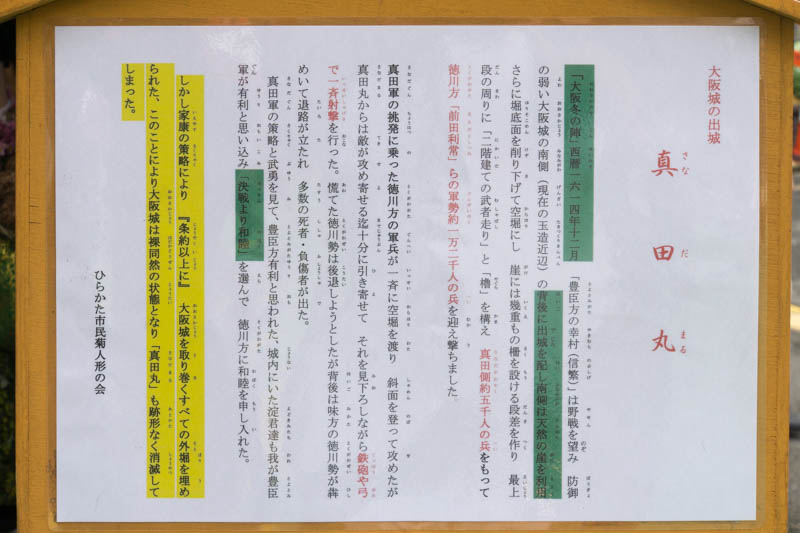 大阪城の出城
真田丸
「大阪冬の陣」西暦一六一四年十二月 「豊臣方の幸村（信繁）」は野戦を望み 防御
の弱い大阪城の南側（現在の玉造近辺）の背後に出城を配し南側は天然の崖を利用
さらに堀底面を削り下げて空堀にし 崖には幾重もの柵を設ける段差を作り 最上
段の周りに「二階建ての武者走り」と「櫓」を構え 真田側約五千人の兵をもって
徳川方「前田利常」らの軍勢約一万二千人の兵を迎え撃ちました。
真田軍の挑発に乗った徳川方の軍兵が一斉に空堀を渡り 斜面を登って攻めたが
真田丸からは敵が攻め寄せる迄十分に引き寄せて それを見下ろしながら鉄砲や弓
で一斉射撃を行った。慌てた徳川勢は後退しようとしたが背後は味方の徳川勢が犇
めいて退路が立たれ 多数の死者・負傷者が出た。
真田軍の策略と武勇を見て、豊臣方有利と思われた、城内にいた淀君達も我が豊臣
軍が有利と思い込み「決戦より和陸」を選んで 徳川方に和陸を申し入れた。
しかし家康の策略により 『条約以上に』 大阪城を取り巻くすべての外堀を埋め
られた、このことにより大阪城は裸同然の状態となり「真田丸」も跡形なく消滅して
しまった。
ひらかた市民菊人形の会